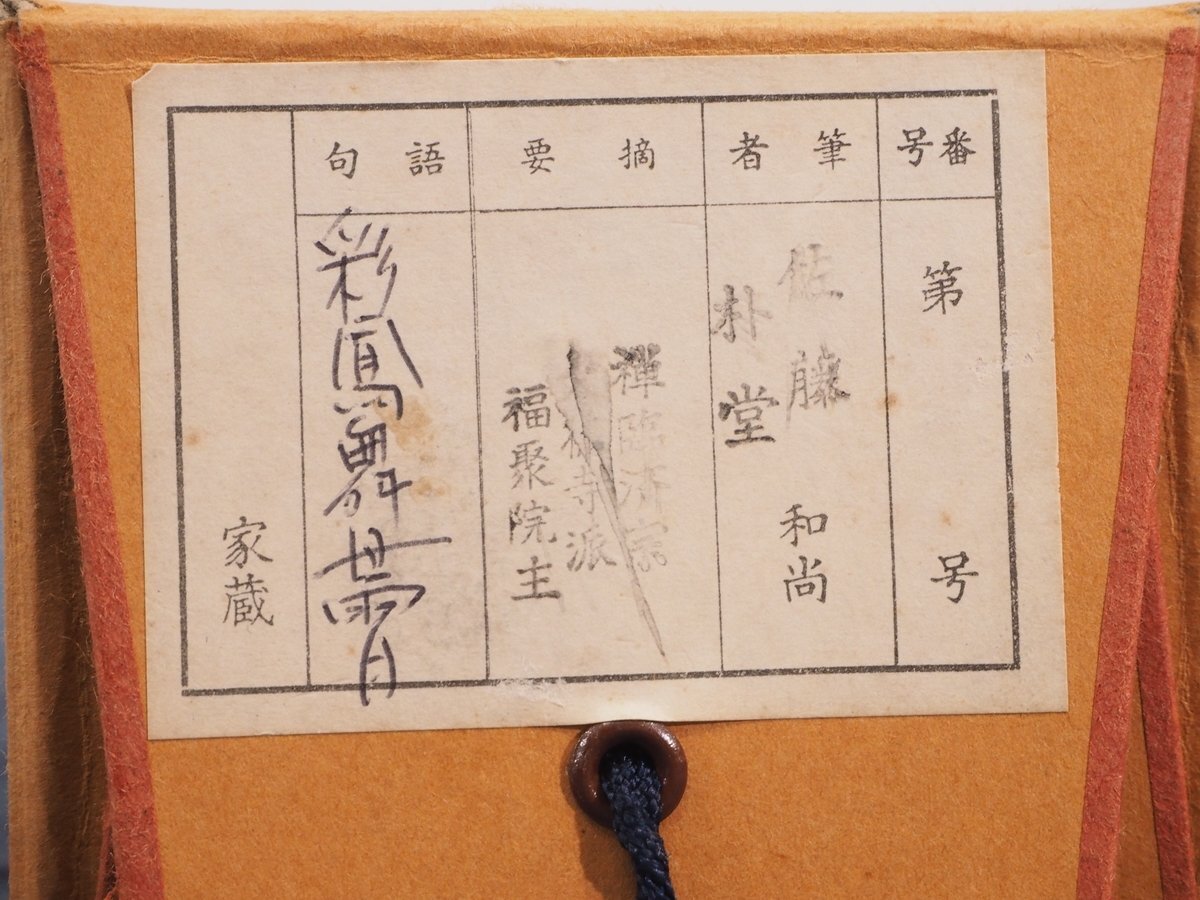 番号
第 号
筆者
佐藤
朴堂
和尚
摘要
禅臨済宗
寺派
福聚院主
語句
彩鳳舞丹霄
家蔵